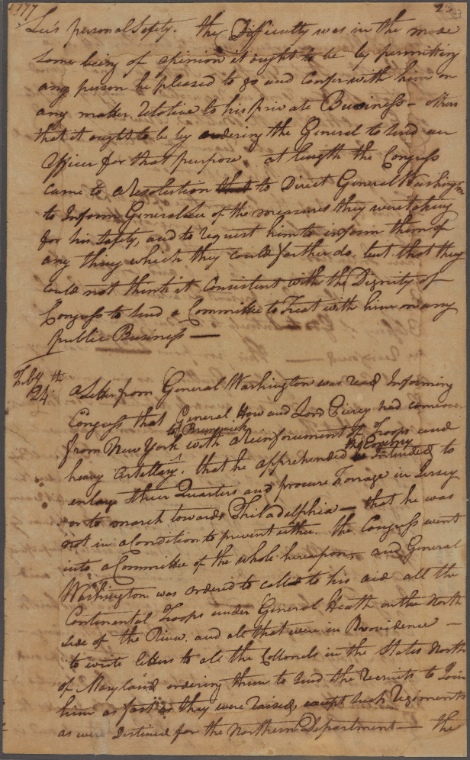 1777
Lee's personal Safety. the Difficulty was in the mode
some being of opinion it ought to be by permitting
any person he pleased to go and confer with him on
any matter relative to his private Business — others
that it ought to be by ordering the General to send an
Officer for that purpose. at length the Congress
came to a resolution to Direct General Washington
to Inform General Lee of the measures they were taking
for his Safety, and to request him to inform them of
any thing which they could farther do, but that they
could not think it Consistent with the Dignity of
Congress to send a Committee to Treat with him on any
public Business —
Feby 24th
a Letter from General Washington was read Informing
Congress that General How and Lord Piercy had
to Brunswick
from New York with a reinforcement of Troops and
the Enemy
heavy Artillery. that he apprehended intended to
enlarge their Quarters and procure Forrage in Jersey
or to march towards Philadelphia — that he was
not in a Condition to prevent either. the Congress went
into a Committee of the whole hereupon and General
Washington was ordered to call to his aid all the
Continental Troops under General Heath on the North
side of the River and all that were in Providence —
to write letters to all the Collonels in the States North
of Maryland ordering them to send the recruits to Join
him as fast as they were raised, except such Regiments
as were Destined for the Northern Department — the